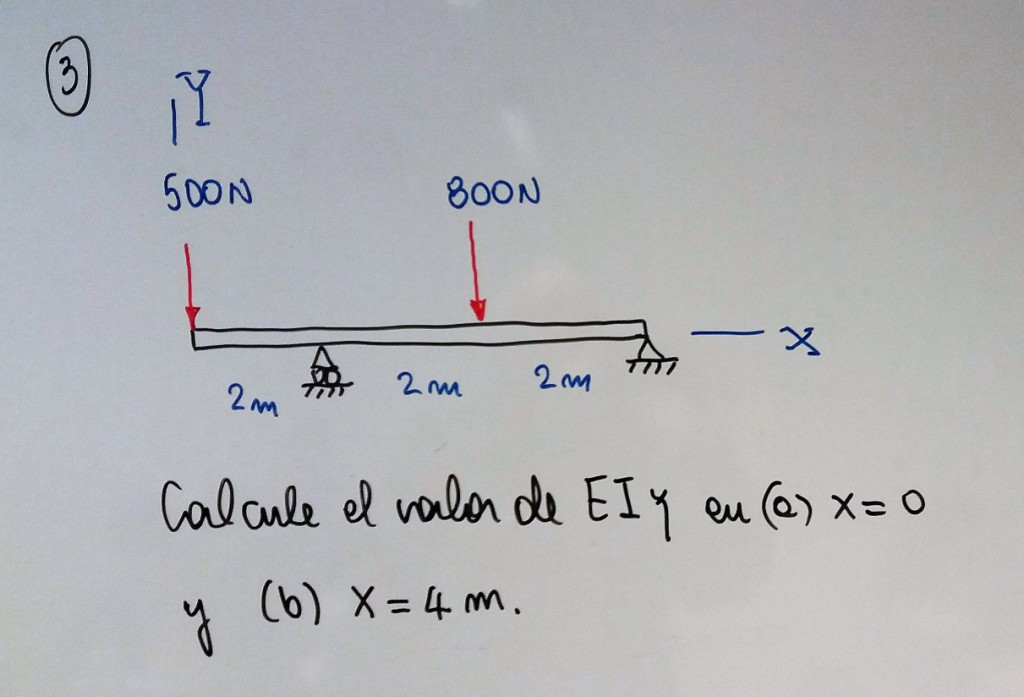 3
Y
500N 800N
X
2m 2m 2m
Calcule el valor de EIY en (a) x=0
y (b) X=4 m.